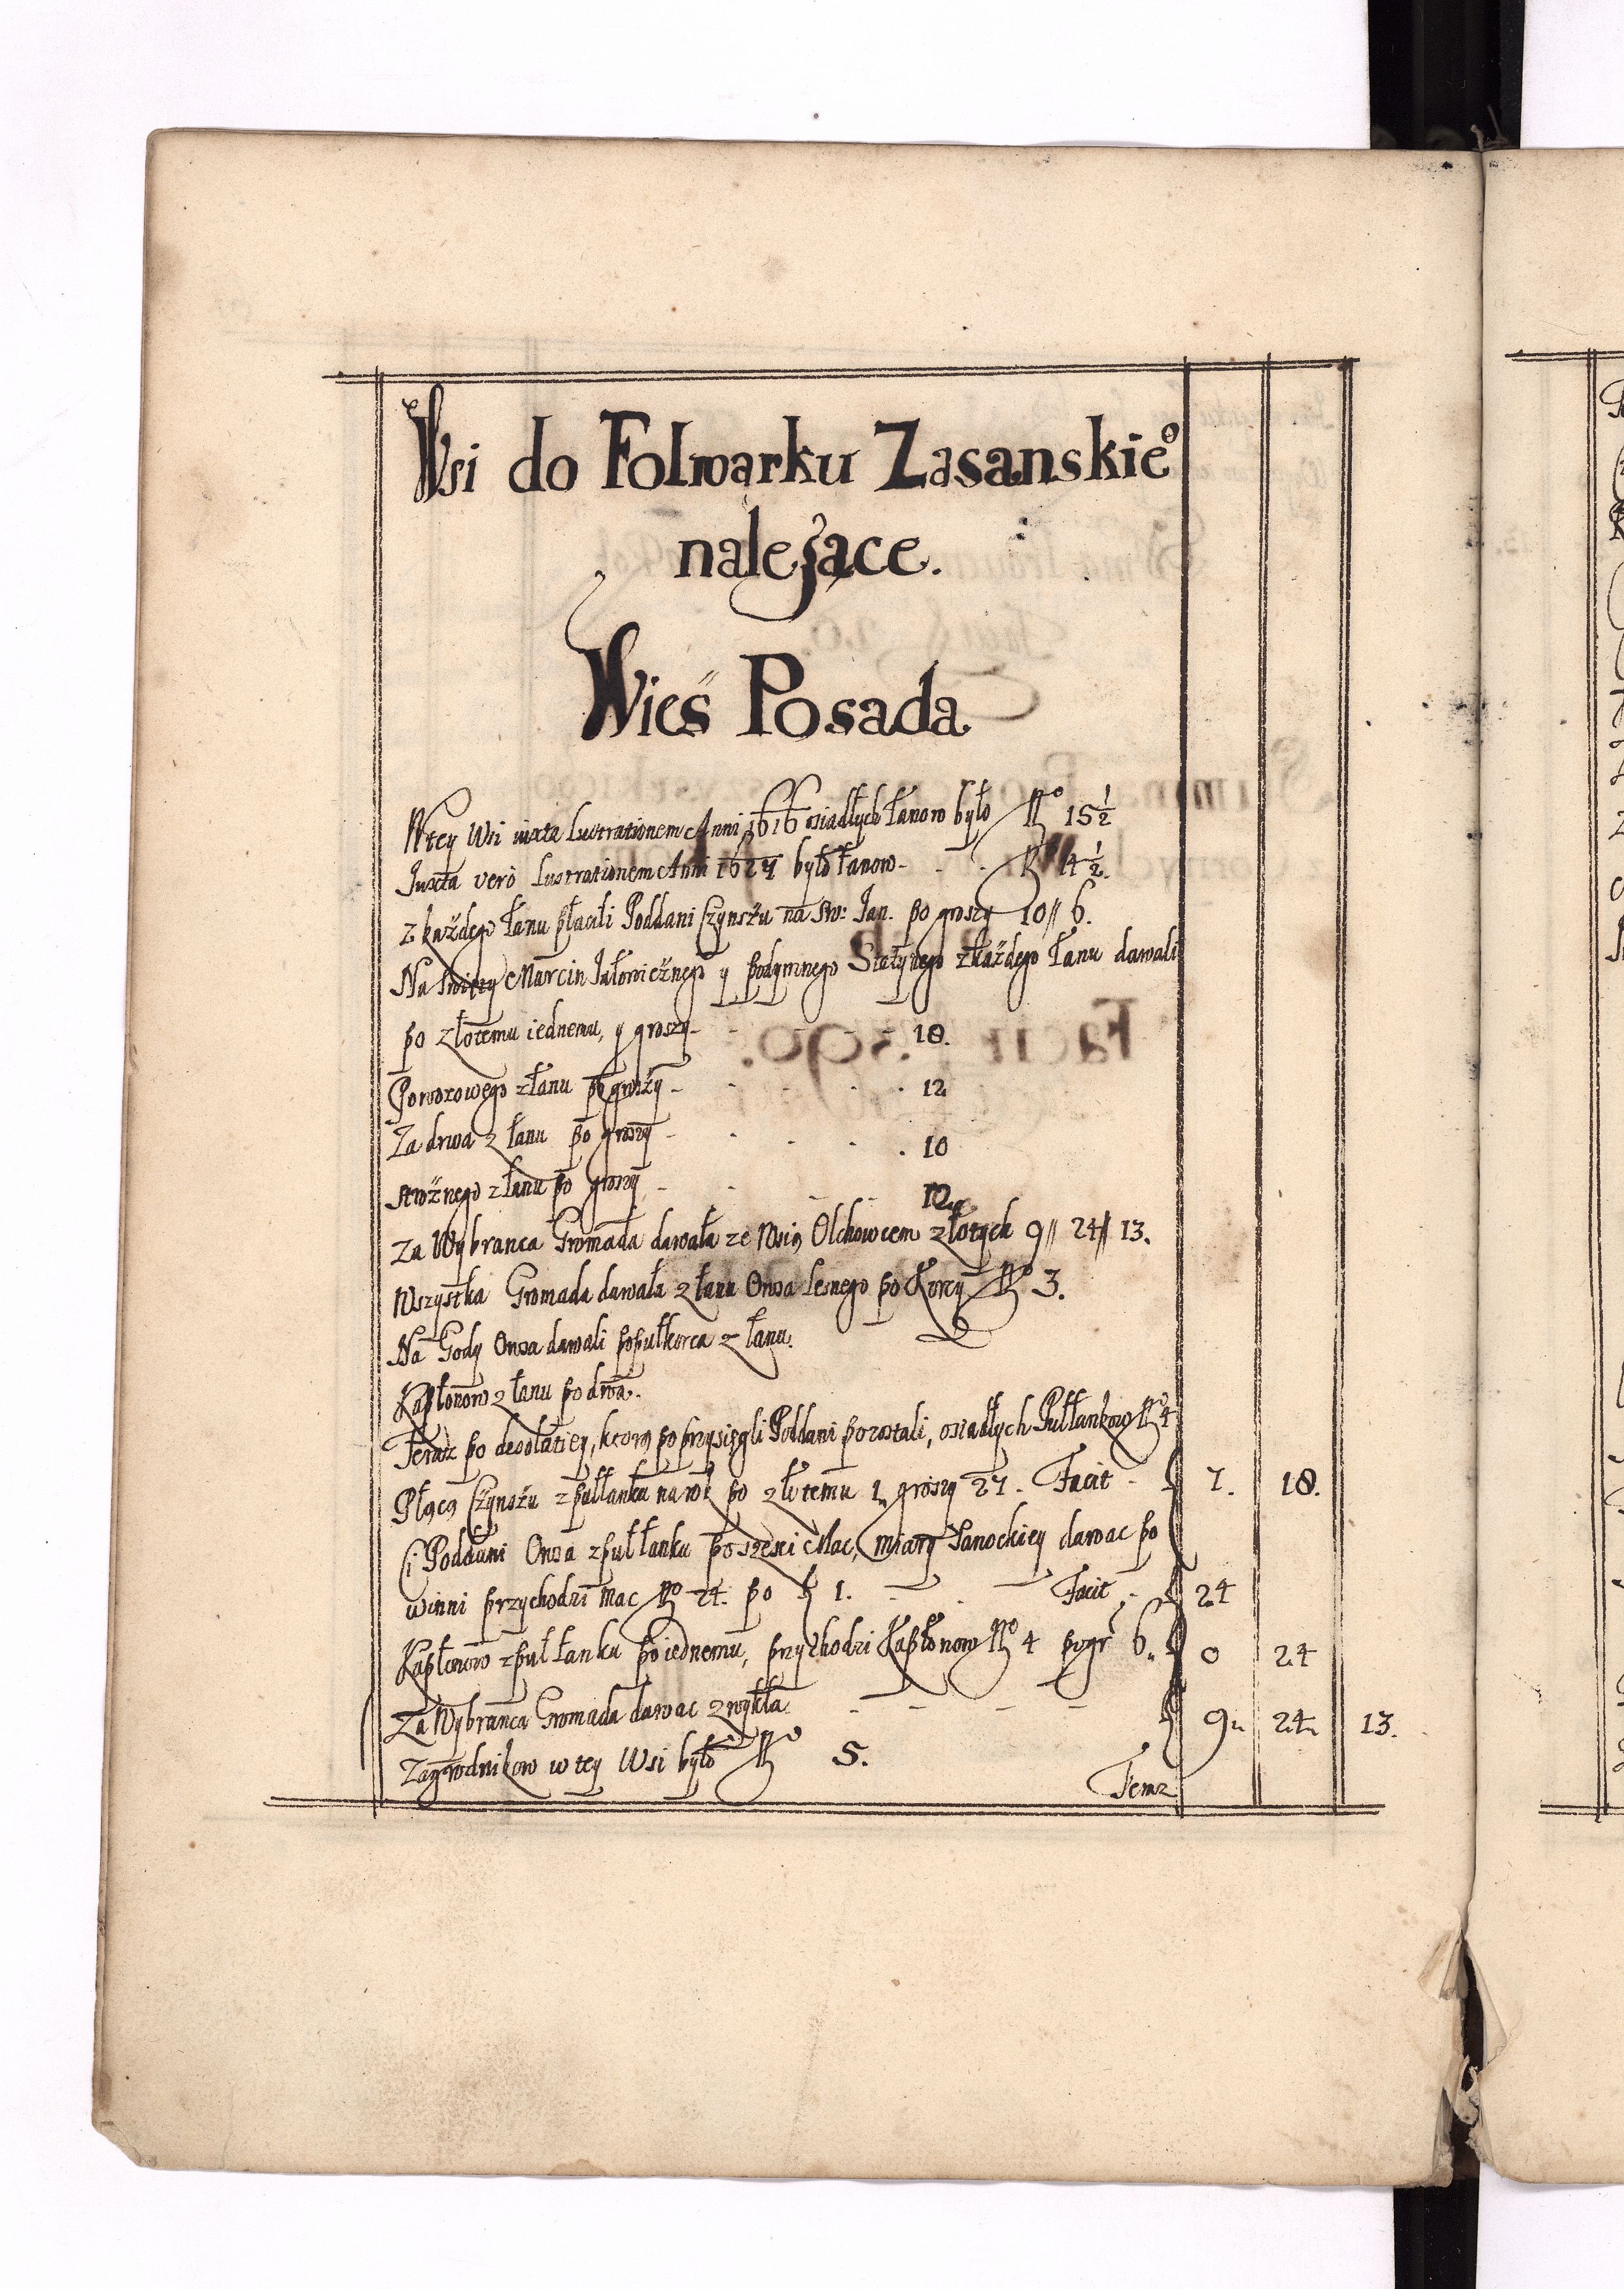 Wsi do Folwarku Zasanskie⁰
należące.
Wieś Posada
W tey Wsi iuxta Lustrationem Anni 1616 osiadłych Łanow było N⁰ 15 1/2
Juxta verò Lustrationem Anni 1627 było Łanow - - - N⁰ 14 1/2.
z każdego Łanu płacili Poddani Czynszu na Sw: Jan. po groszy 10 // 6.
Na Swięty Marcin Jałowicznego y podymnego Stałynego z każdego Łanu dawali
po złotemu iednemu, y groszy - - - 18.
Powozowego z Łanu po groszy - - - 12
Za drwa z Łanu po groszy - - - 10
strożnego z Łanu po groszy - - - 12
Za Wybranca Gromada dawała ze Wsią Olchowcem złotych 9 // 24 // 13.
Wszystka Gromada dawała z Łanu Owsa Lesnego po Korcy N⁰ 3.
Na Gody Owsa dawali po pułkorca z Łanu.
Kapłonow z Łanu po dwa.
Teraz po desolatiey, ktorą poprzysięgli Poddani pozostali, osiadłych Pułłankow N⁰ 4
Płacą Czynszu z pułłanku na rok po złotemu 1 groszy 27. Facit - 7. 18.
Ci Poddani Owsa z pułłanku po szesci Mac, miary Sanockiey dawac po
winni przychodzi Mac N⁰ 24. po f 1. - - - Facit - 24
Kapłonow z puł Łanku po iednemu, przychodzi Kapłonow N⁰ 4 po gr 6. 0 24
Za Wybranca Gromada dawac zwykła - - - - 9 24 13.
Zagrodnikow w tey Wsi było N⁰ 5.
Teraz